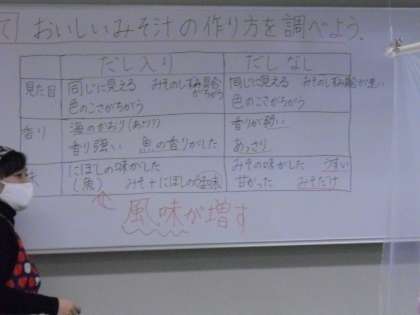 て おいしいみそ汁の作り方を調べよう。
だし入り だしなし
見た目 同じに見える みそのしずみ具合がちがう 同じに見える みそのしずみ具合が
色のこさがちがう 色のこさがちがう
香り 海のかおり 香りが弱い
香り強い 魚の香りがした あっさり
にぼしの味がした みその味がした うすい
(魚) みそ+にぼしの 甘かった みそだけ
風味が増す